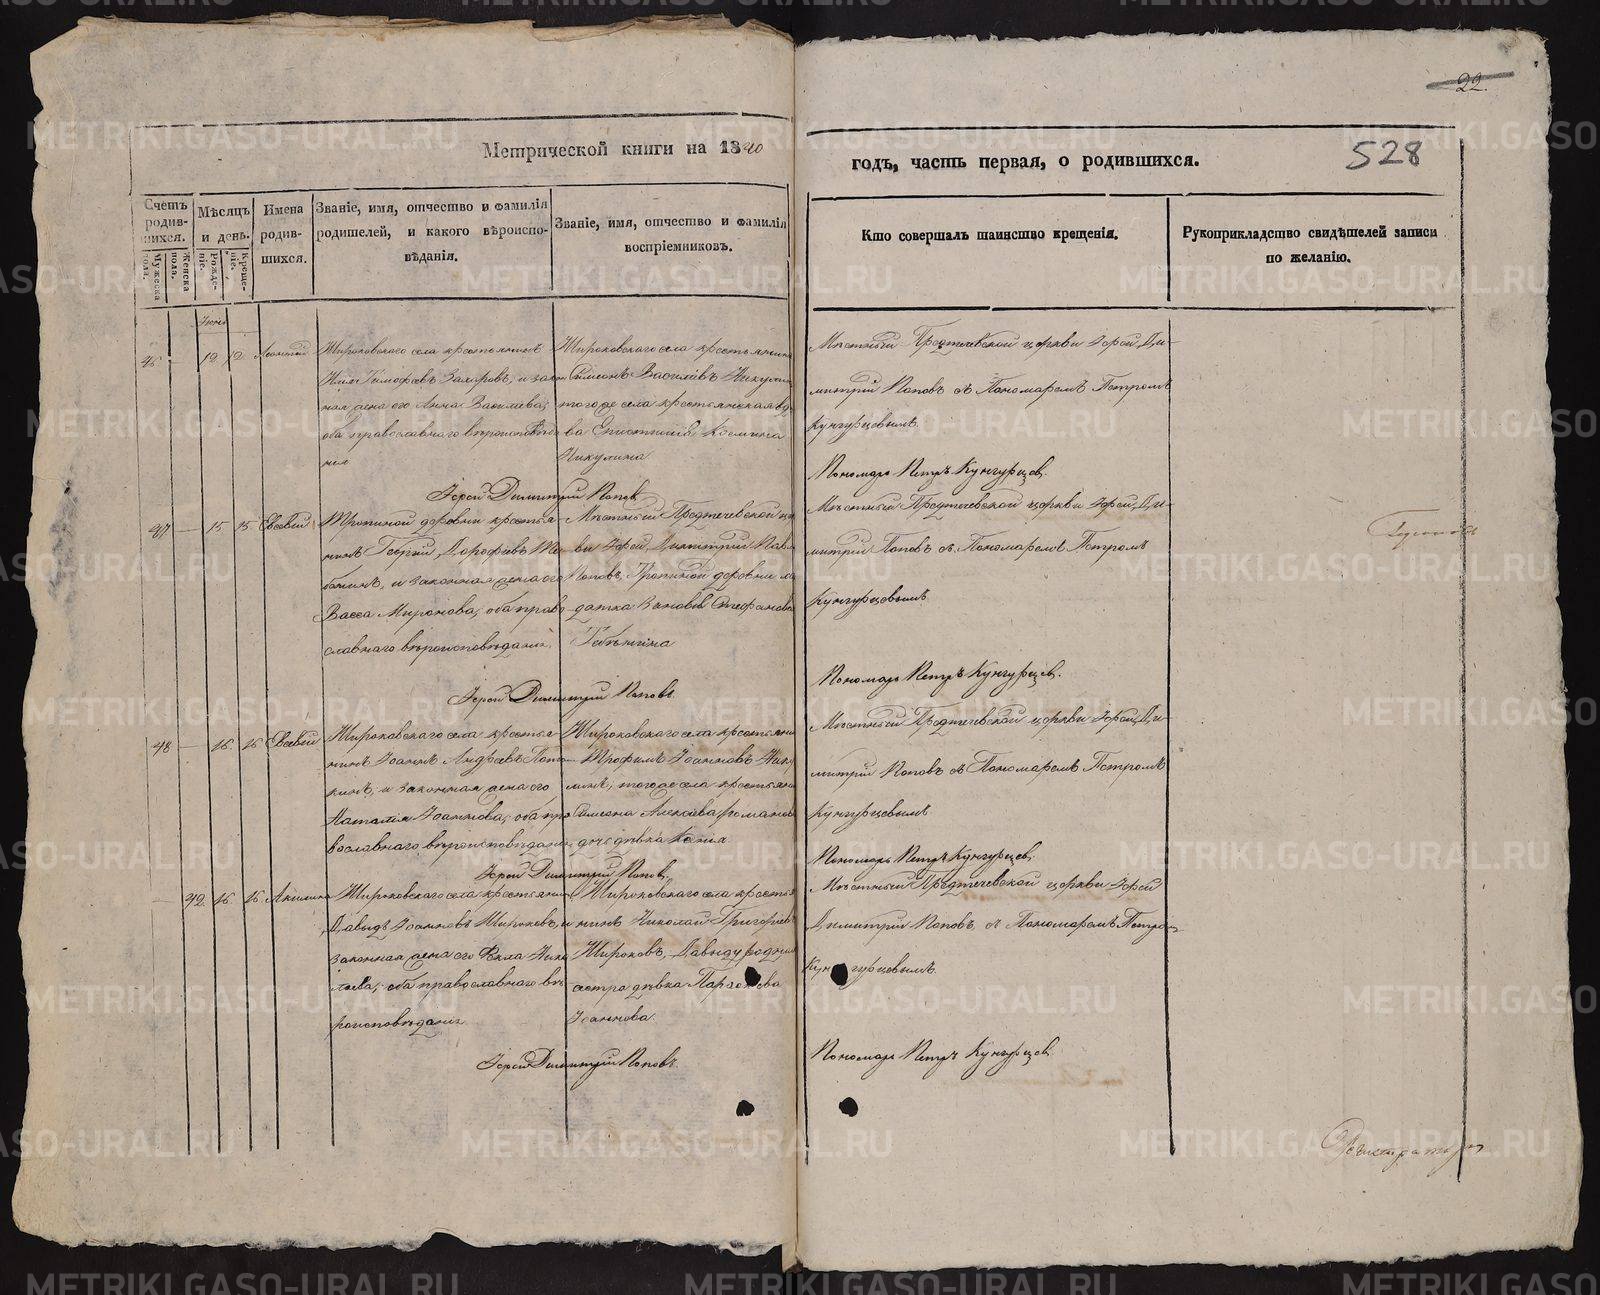 22.
528
Метрической книги на 1840
годъ, часть первая, о родившихся.
Счетъ родив-шихся.
Мужеска пола.
Женска пола.
Мѣсяцъ и день.
Рожде-ніе.
Креще-ніе.
Имена родив-шихся.
Званіе, имя, отчество и фамилія родителей, и какого вѣроиспо-вѣданія.
Званіе, имя, отчество и фамилія воспріемниковъ.
Кто совершалъ таинство крещенія.
Рукоприкладство свидѣтелей записи по желанію.
46 12 12 Леонтий
Широковскаго села крестьянинъ
Тимофеевъ Захаровъ, и закон
ная жена его Анна Васильева,
оба православнаго вѣроисповѣда
нія
Широковскаго села крестьянинъ
Симеонъ Васильевъ Никулин
тогоже села крестьянская вдо
ва Космина
Никулина
Мѣстный Предтечевской церкви Іерей Ди-
митрий Поповъ съ Пономаремъ Петромъ
Кунгурцевымъ.
Пономарь Петръ Кунгурцев.
Іерей Димитрий Попов
47 15 15 Евсевий
деревни крестья-
нинъ Георгий Дорофеевъ
и законная жена его
Васса Миронова, оба право
славнаго вѣроисповѣданія
Мѣстный Предтечевской це
ви Іерей Димитрий
Поповъ, деревни
Стефанова
Мѣстный Предтечевской церкви Іерей Ди-
митрий Поповъ съ Пономаремъ Петромъ
Кунгурцевымъ
Пономарь Петръ Кунгурцев.
Іерей Димитрий Поповъ
48 16 16 Евсевий
Широковскаго села крестья-
нинъ Іоаннъ Андреевъ
и законная жена его
Наталия Іоаннова, оба пра
вославнаго вѣроисповѣдани
Широковскаго села крестьяни
Трофимъ Іоанновъ
тогоже села крестьяни
Симеона Алексѣева Романов
дочь дѣвка Ксения
Мѣстный Предтечевской церкви Іерей Ди-
митрий Поповъ съ Пономаремъ Петромъ
Кунгурцевымъ
Пономарь Петръ Кунгурцев.
Іерей Димитрий Попов.
42 16 16 Акилина
Широковскаго села крестьянин
Давыдъ Іоанновъ Широковъ, и
законная жена его Фекла
оба православнаго вѣ
роисповѣдания
Широковскаго села крестья
нинъ Николай Григорьев
Широковъ, Давыду родная
сестра дѣвка
Іоаннова.
Мѣстный Предтечевской церкви Іерей
Димитрий Поповъ съ Пономаремъ Петром
Кунгурцевымъ.
Пономарь Петръ Кунгурцев
Іерей Димитрий Поповъ.
METRIKI.GASO-URAL.RU